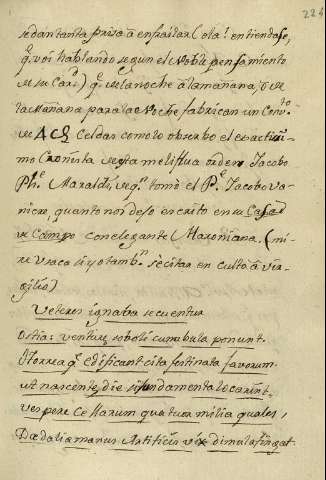 224
se dan tanta prisa â enjaular (ola! entiendase,
q.e voi hablando segun el Noble pensamiento
de su Car.d) q.e de la noche â la mañana, ò de
la Mañana para la Noche fabrican un Conv.to
de Celdas como lo observò el exactisi-
mo Cronista de esta meliflua orden Jacobo
Ph.e Maraldi, de q.n tomò el P.e Jacobo Va-
niere, quanto nos dejo escrito en su Casa
de Campo con elegante Maroniana. (mi-
re Vraca si yo tamb.n sè citar en culto â Vir-
gilio)
Veteres ignava secuentur
Ostia: venturæ soboli cunabula ponunt.
Horrea q.e edificant cita festinata favorum.
Ut nascente die si fundamenta locarint,
vespere Cellarum quatuor milia quales,
Dædaliæ manus Artificis vix dimula fingat.